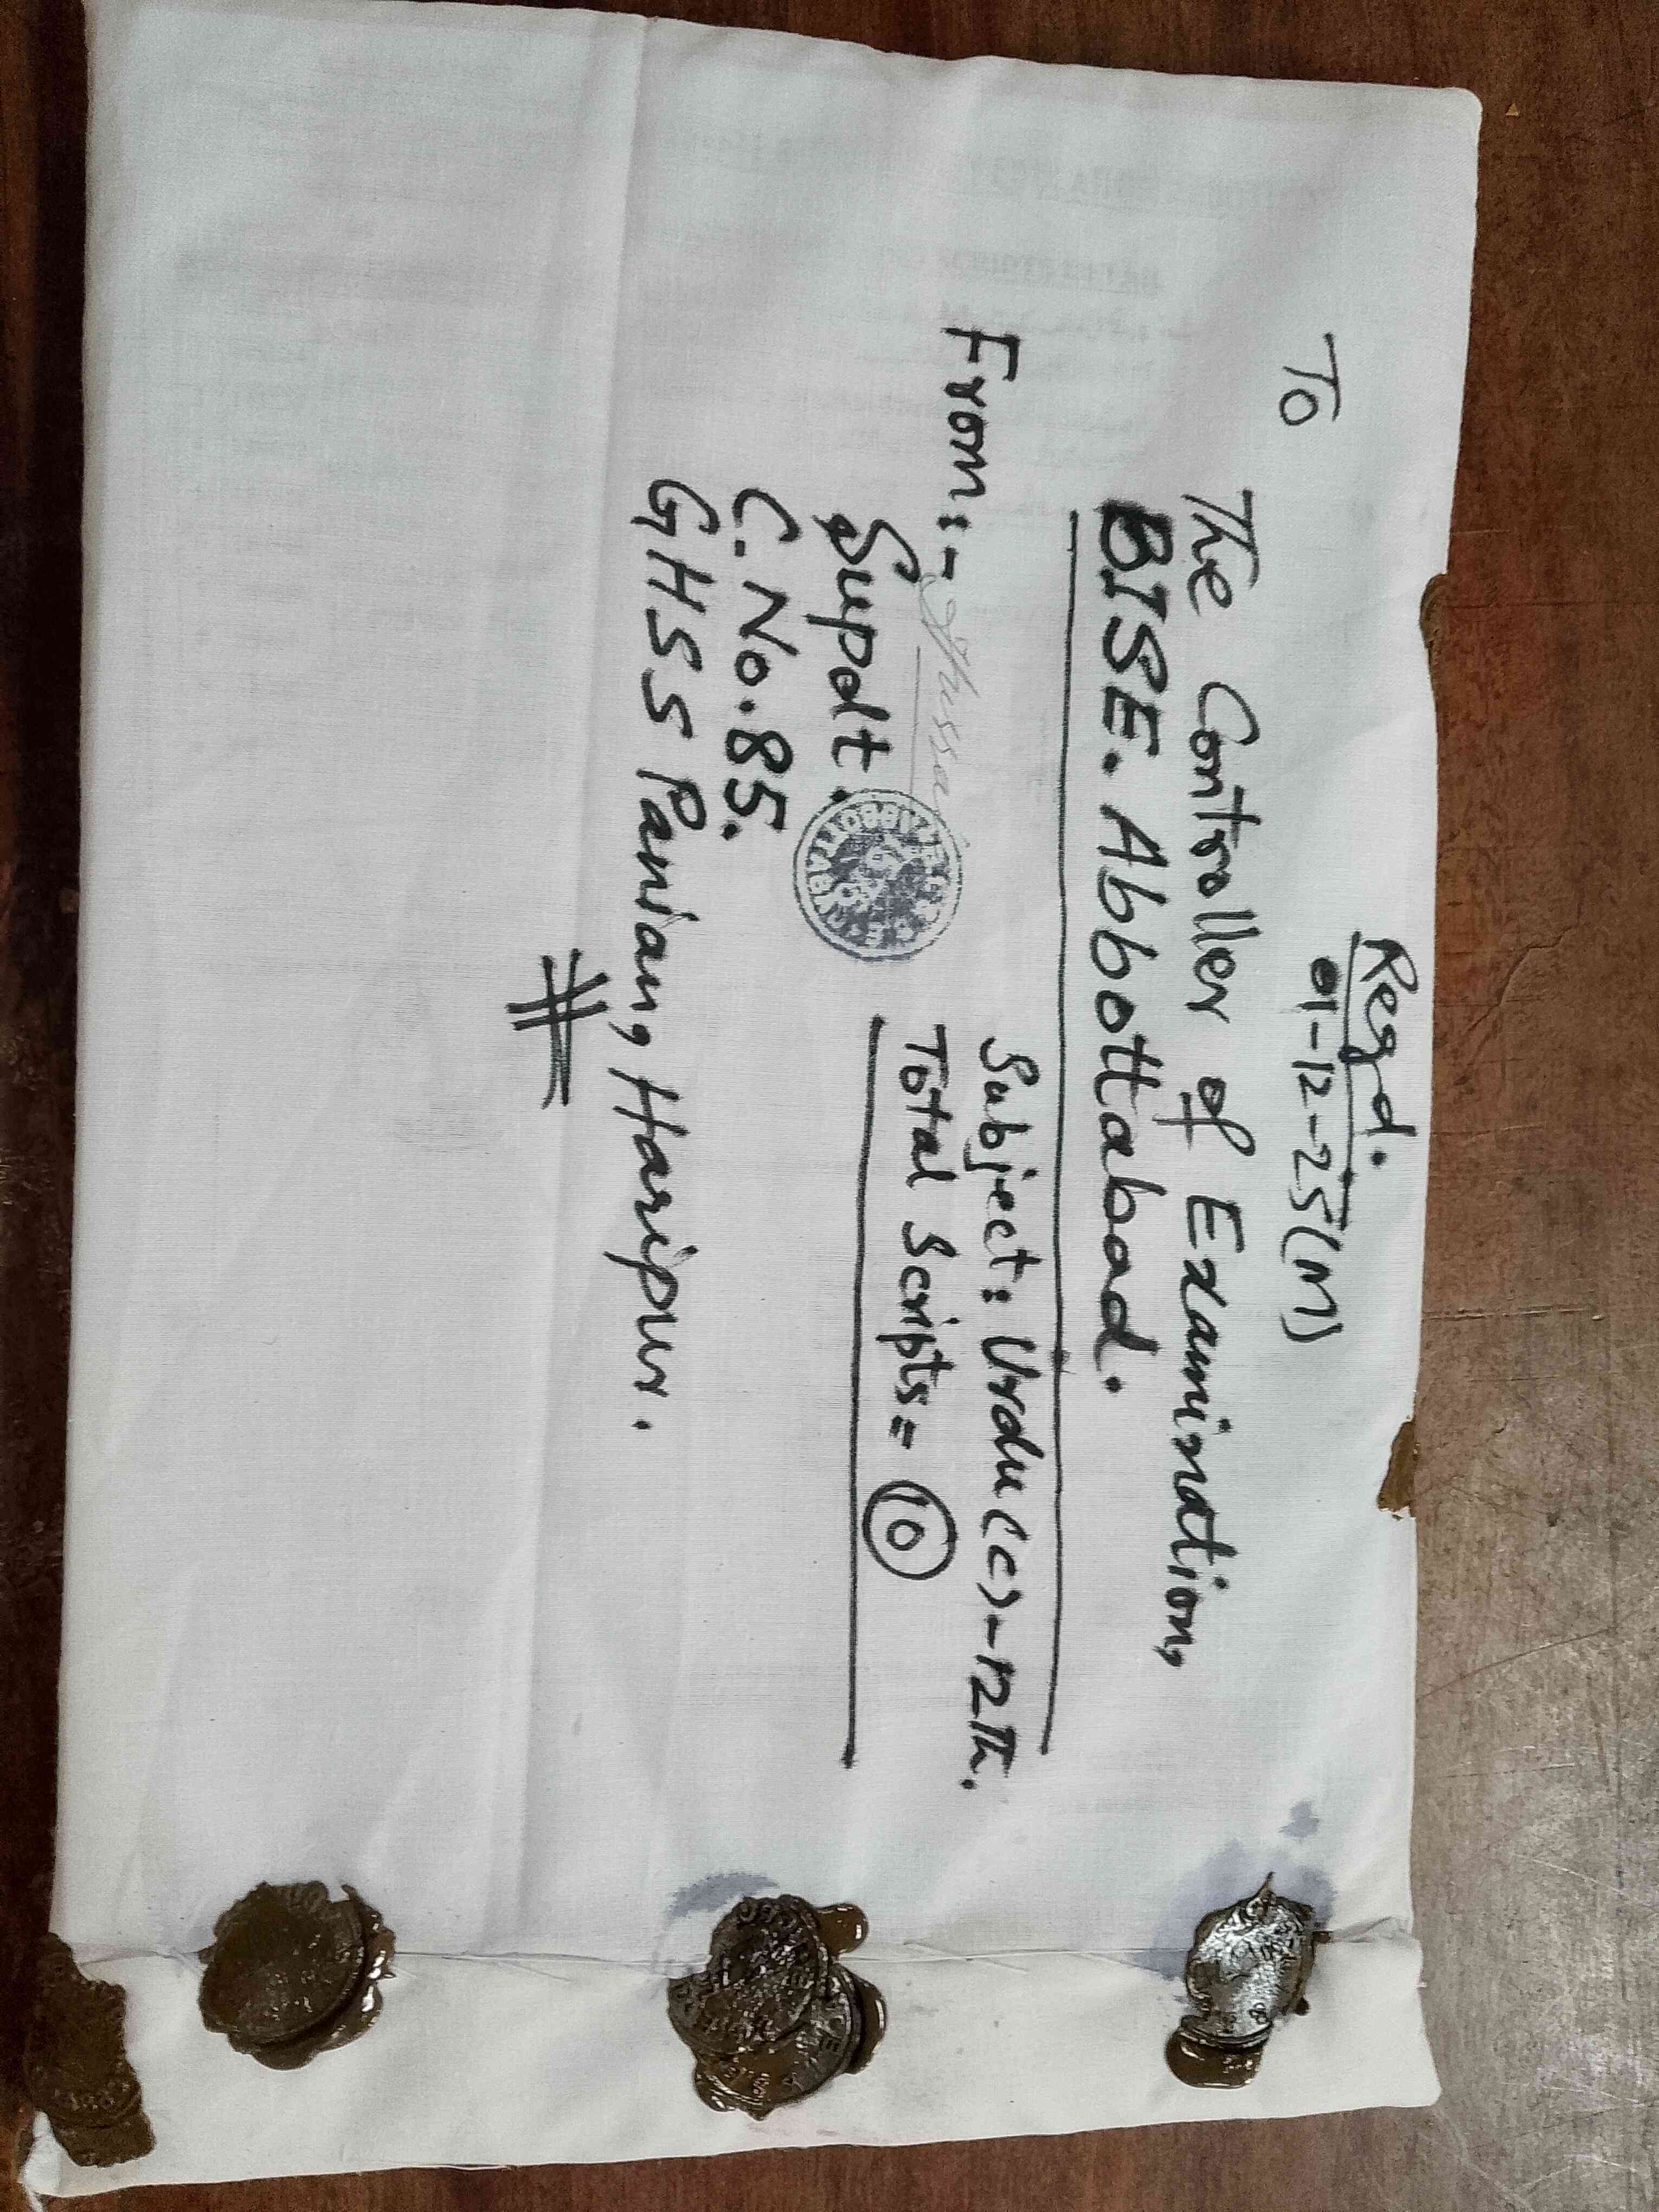 Regd.
01-12-25(M)
To
The Controller of Examination,
BISE. Abbottabad.
Subject: Urdu(c)-12th.
Total Scripts= 10
From:-
Supdt.
C.No.85.
GHSS Panian, Haripur.